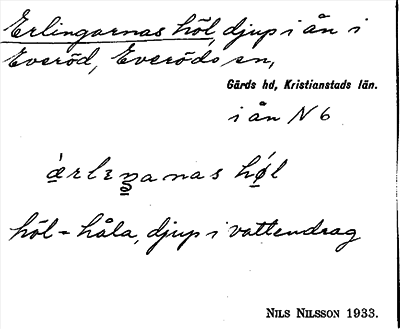 Erlingarnas höl, djup i ån i
Everöd, Everöds sn,
Gärds hd, Kristianstads län.
i ån N 6
höl = håla, djup i vattendrag
NILS NILSSON 1933.